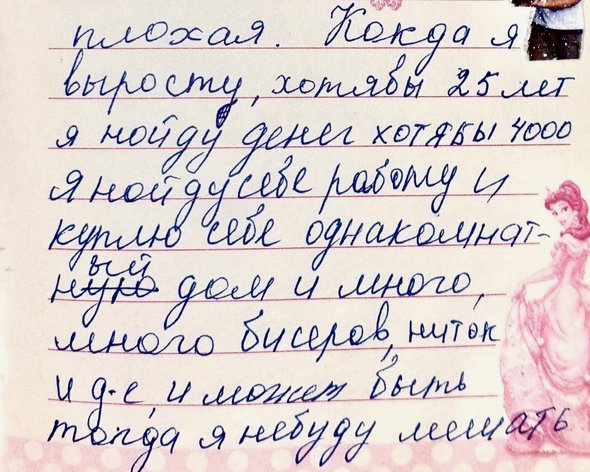 плохая. Кокда я
выросту, хотябы 25 лет
я нойду денег хотябы 4000
я нойду себе работу и
куплю себе однакомнат-
ный дом и много,
много бисеров, ниток
и д.е, и может быть
тогда я небуду мешать